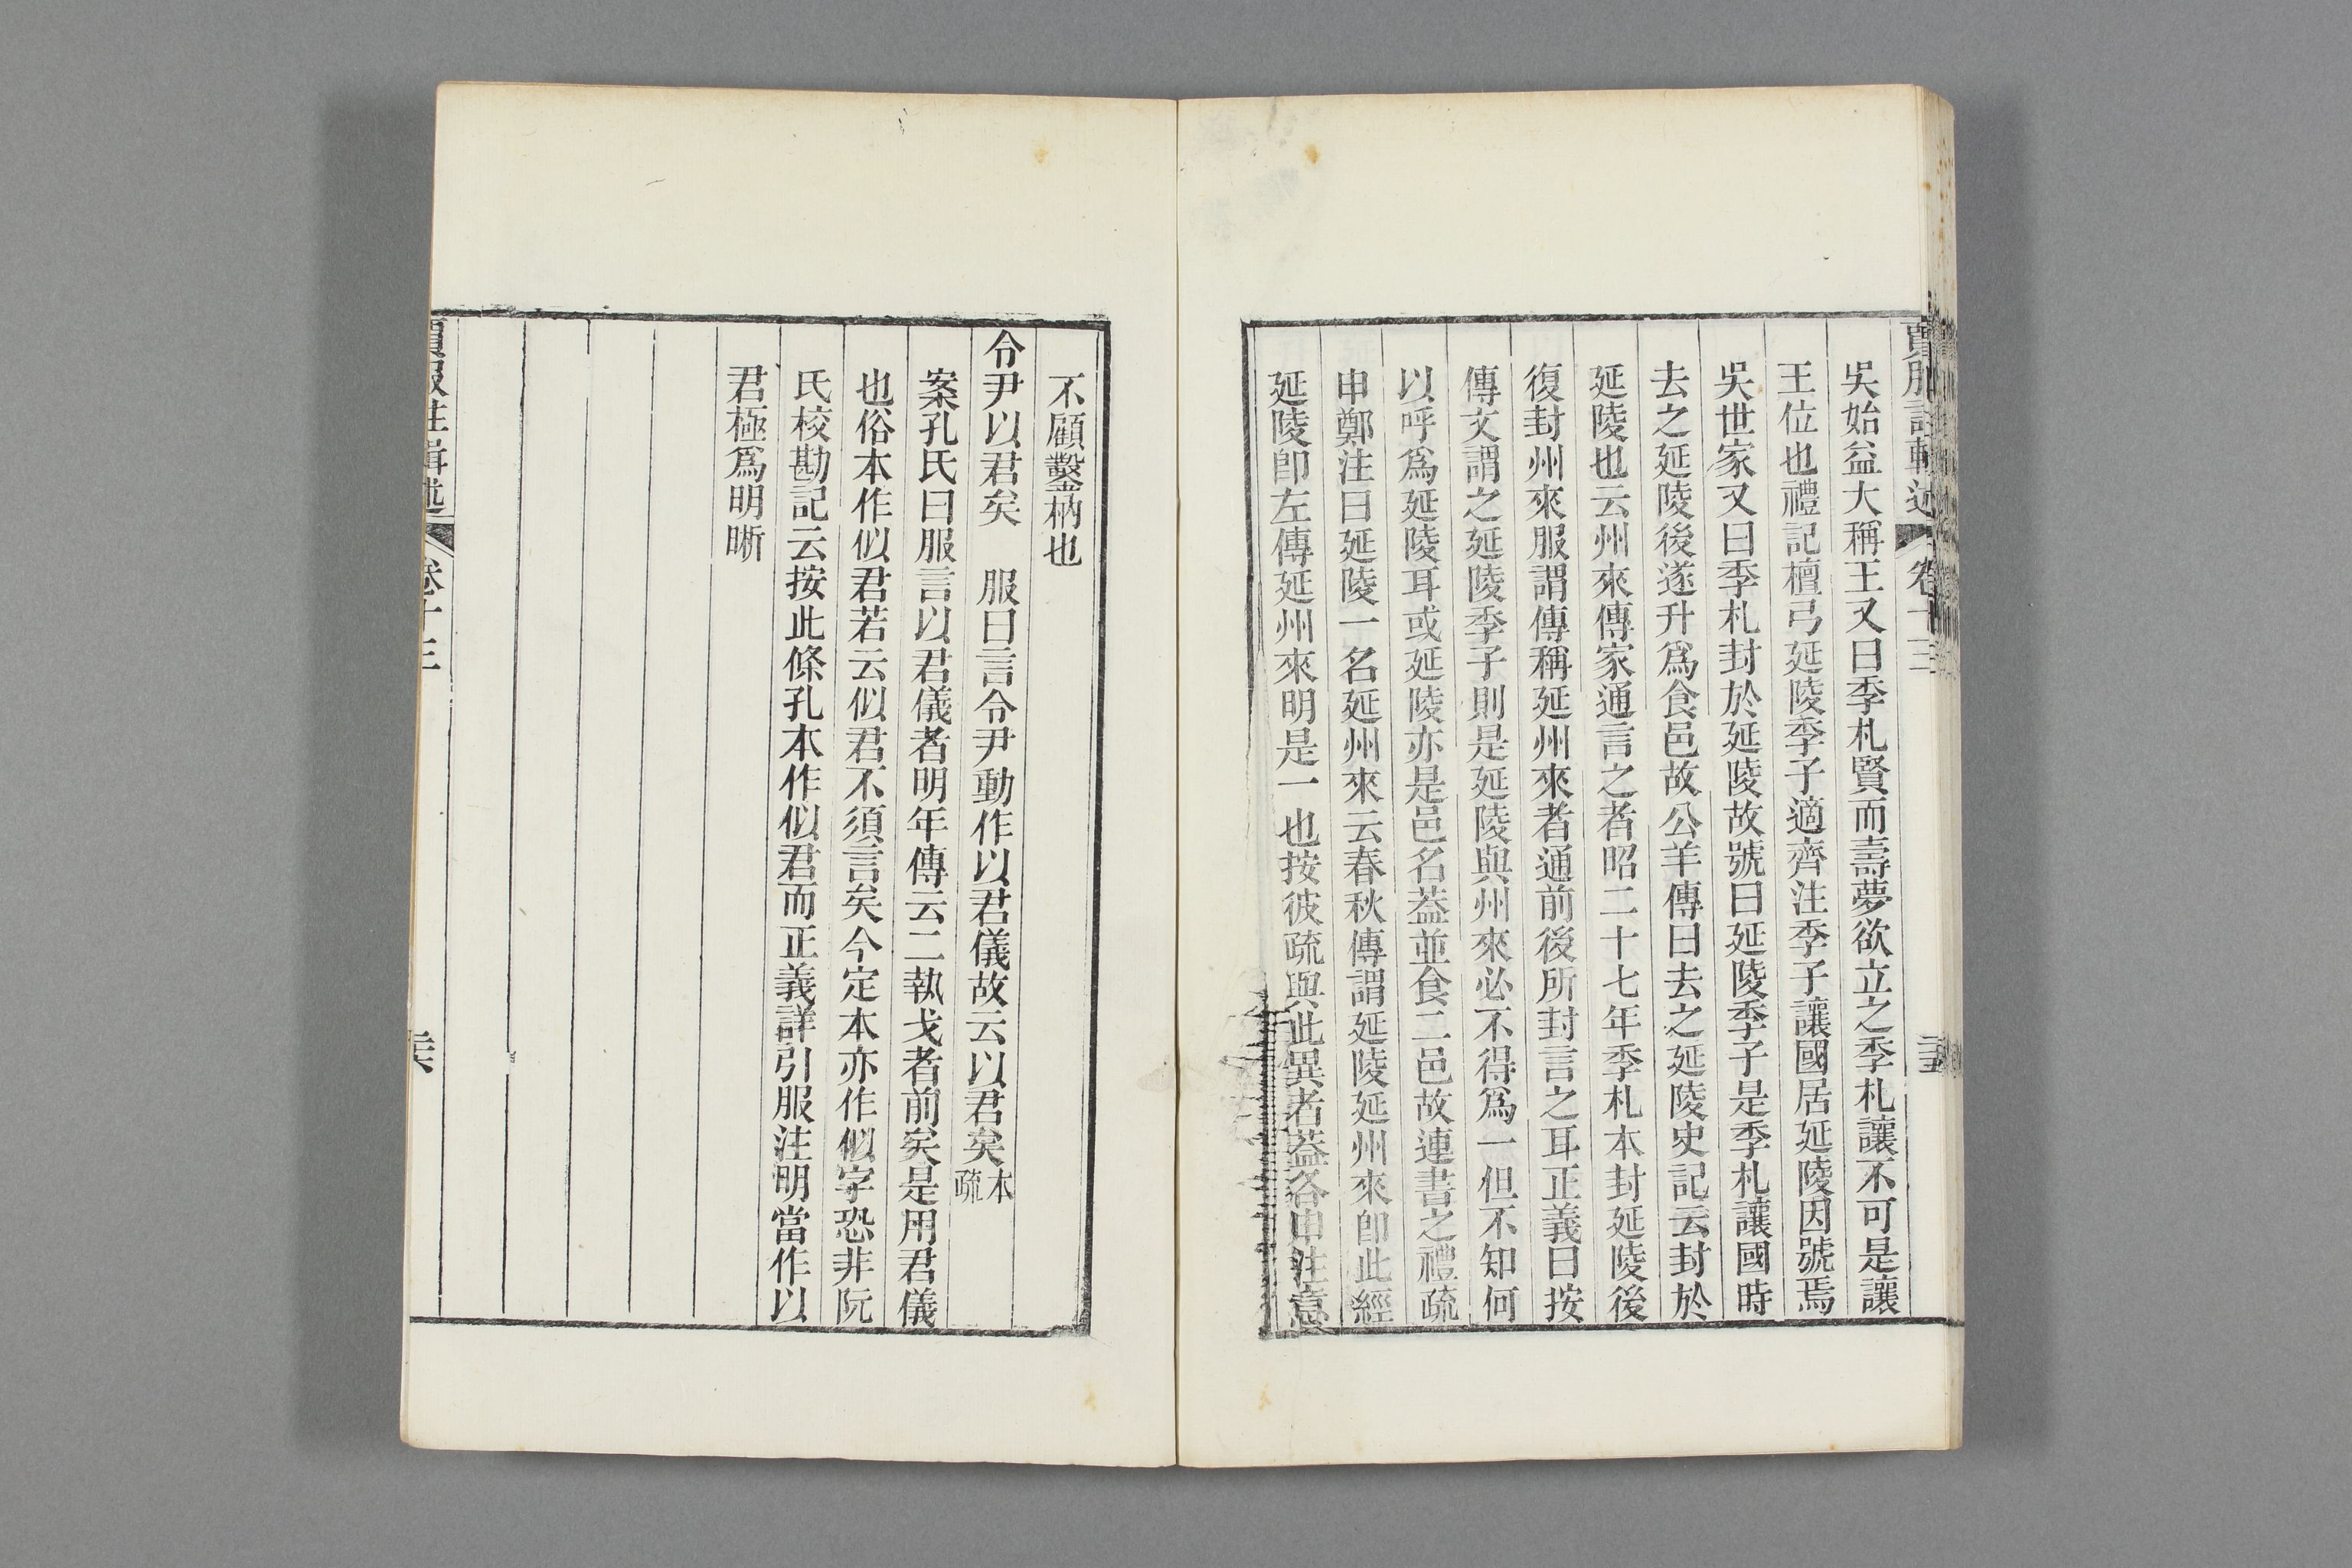 吳始益大稱王又曰季札賢而壽夢欲立之季札讓不可是讓
王位也禮記檀弓延陵季子適齊注季子讓國居延陵因號焉
吳世家又曰季札封於延陵故號曰延陵季子是季札讓國時
去之延陵後遂升爲食邑故公羊傳曰去之延陵史記云封於
延陵也云州來傳家通言之者昭二十七年季札本封延陵後
復封州來服謂傳稱延州來者通前後所封言之耳正義曰按
傳文謂之延陵季子則是延陵與州來必不得爲一但不知何
以呼爲延陵耳或延陵亦是邑名葢並食二邑故連書之禮疏
申鄭注曰延陵一名延州來云春秋傳謂延陵延州來卽此經
延陵卽左傳延州來明是一也按彼疏與此異者葢各申注意
賈服註輯述 卷十三 二十五
不顧鑿枘也
令尹以君矣 服曰言令尹動作以君儀故云以君矣本疏
案孔氏曰服言以君儀者明年傳云二執戈者前矣是用君儀
也俗本作似君若云似君不須言矣今定本亦作似字恐非阮
氏校勘記云按此條孔本作似君而正義詳引服注明當作以
君極爲明晰
賈服註輯述 卷十三 二十六